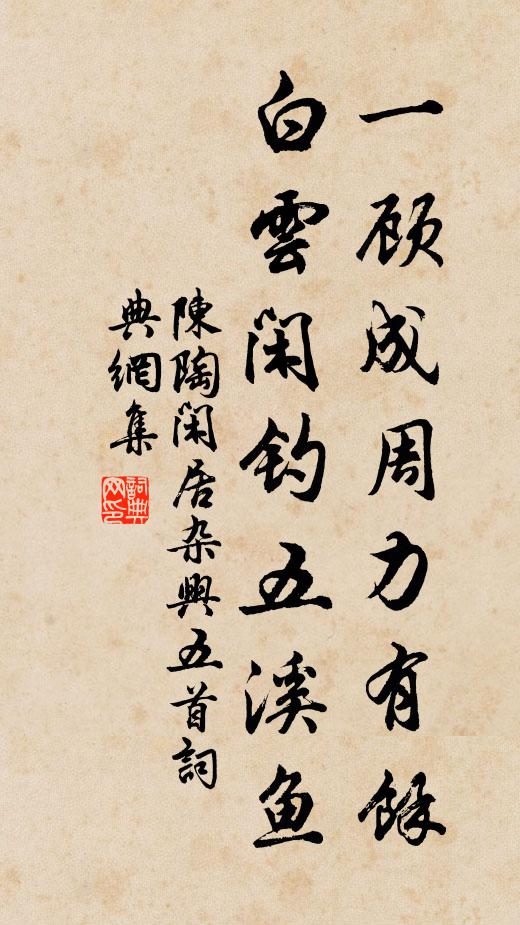 一顾成周力有餘
白雲闲钓五溪魚
陳陶闲居杂興五首詞
典網集
詞典网印